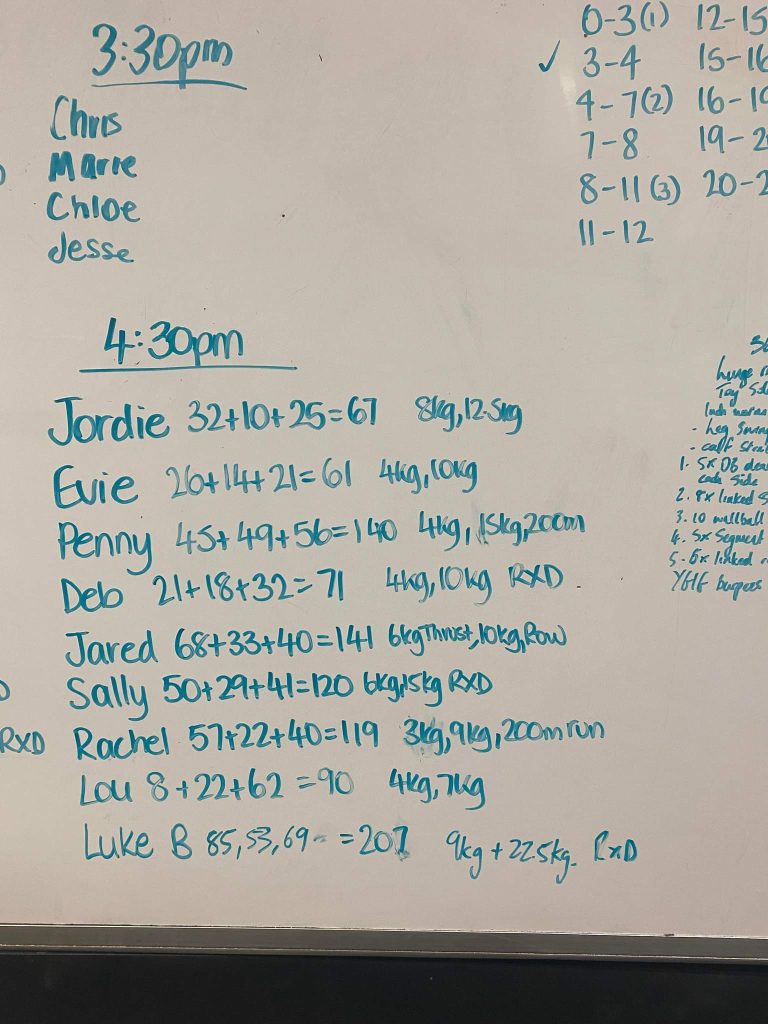 3:30pm
Chris
Marie
Chloe
Jesse
0-3(1) 12-15
✓ 3-4 15-16
4-7(2) 16-19
7-8 19-2
8-11(3) 20-2
11-12
4:30pm
Jordie 32+10+25=67 8kg,12.5kg
Evie 26+14+21=61 4kg,10kg
Penny 45+49+56=140 4kg,15kg,200m
Deb 21+18+32=71 4kg,10kg RXD
Jared 68+33+40=141 6kgThrust,10kg,Row
Sally 50+29+41=120 6kg,15kg RXD
RXD Rachel 57+22+40=119 3kg,9kg,200m run
Lou 8+22+62=90 4kg,7kg
Luke B 85,53,69 =207 9kg+22.5kg. RxD
lunge
- leg
- calf
1. 5x DB
each side
2. 8x linked
3. 10 wallball
4. 5x Segment
5. 6x linked
burpees